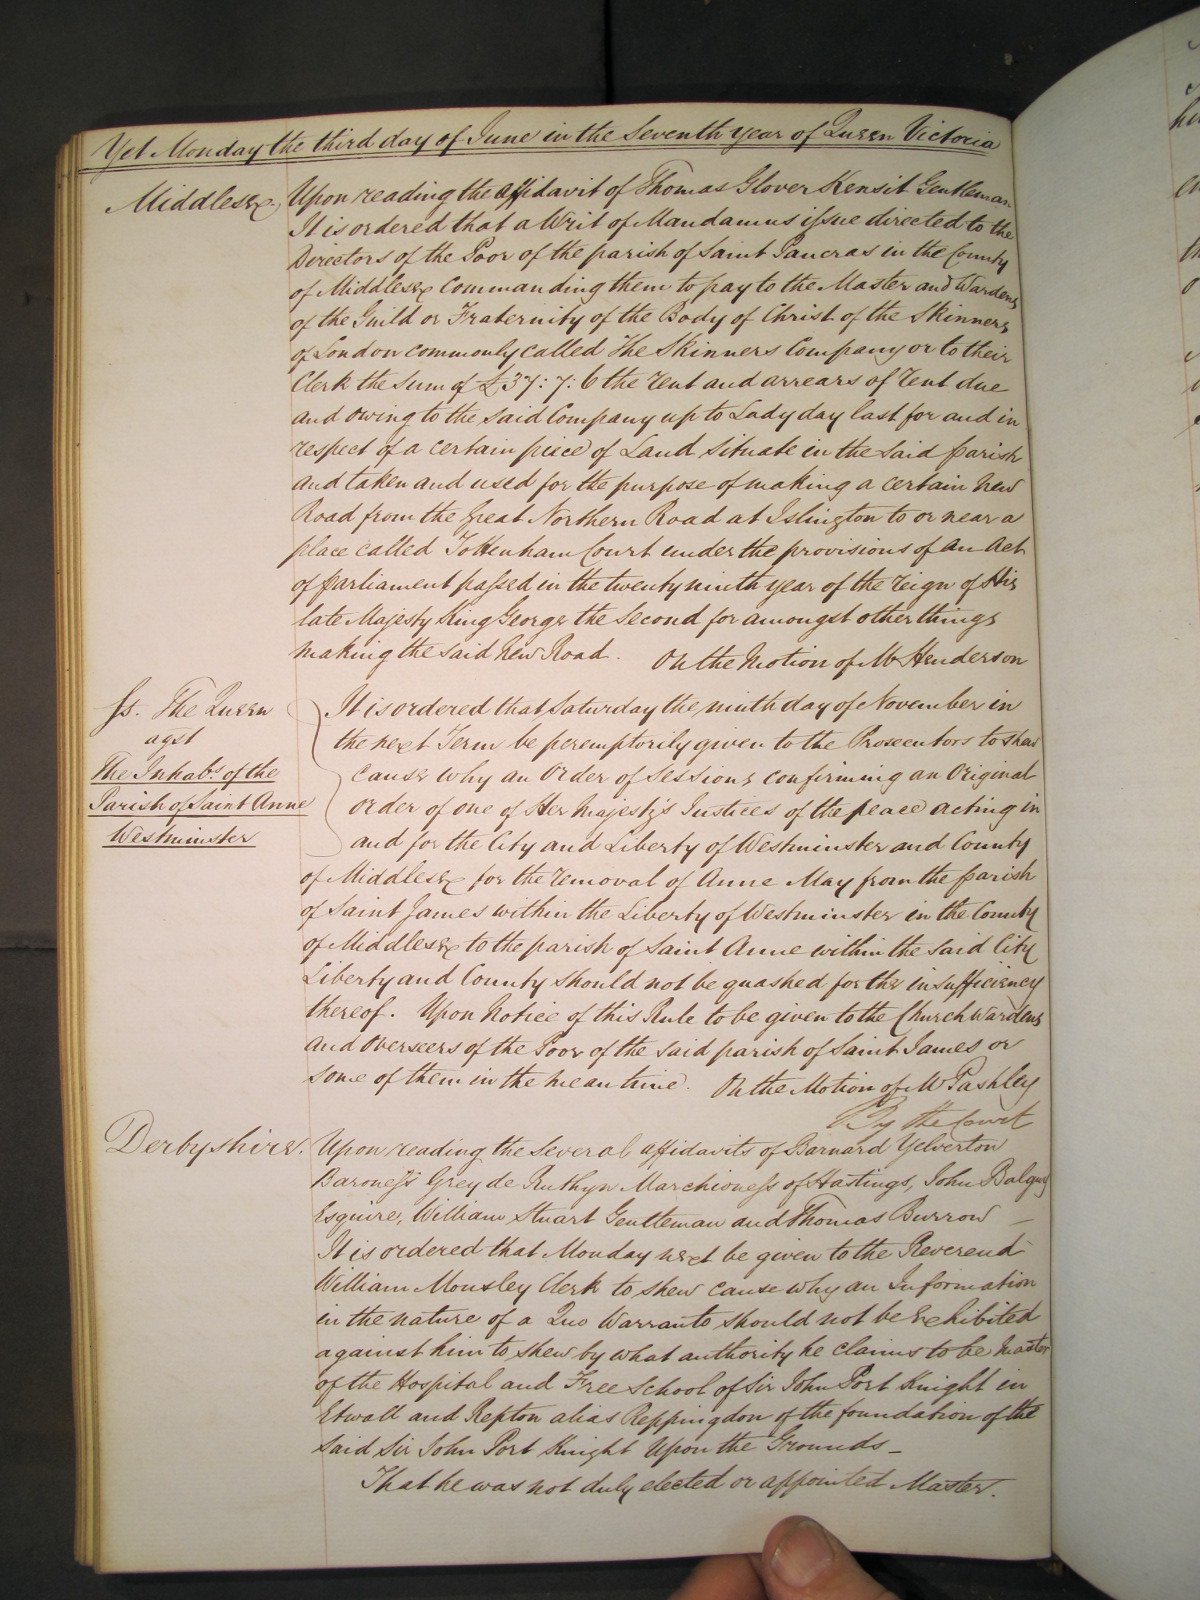 Yet Monday the third day of June in the Seventh year of Queen Victoria
Middlesex. Upon reading the affidavit of Thomas Glover Kensit Gentleman
It is ordered that a Writ of Mandamus issue directed to the
Directors of the Poor of the parish of Saint Pancras in the County
of Middlesex Commanding them to pay to the Master and Wardens
of the Guild or Fraternity of the Body of Christ of the Skinners
of London commonly called The Skinners Company or to their
Clerk the Sum of £37: 7: 6 the rent and arrears of rent due
and owing to the said Company up to Lady day last for and in
respect of a certain piece of Land situate in the said parish
and taken and used for the purpose of making a certain new
Road from the Great Northern Road at Islington to or near a
place called Tottenham Court under the provisions of an Act
of parliament passed in the twenty ninth year of the reign of His
late Majesty King George the Second for amongst other things
making the said New Road. On the Motion of Mr Henderson
Ss. The Queen
agst
The Inhabs. of the
Parish of Saint Anne
Westminster
It is ordered that Saturday the ninth day of November in
the next Term be peremptorily given to the Prosecutors to shew
cause why an Order of Sessions confirming an Original
order of one of Her Majesty's Justices of the peace acting in
and for the City and Liberty of Westminster and County
of Middlesex for the removal of Anne May from the parish
of Saint James within the Liberty of Westminster in the County
of Middlesex to the parish of Saint Anne within the said City
Liberty and County should not be quashed for the insufficiency
thereof. Upon Notice of this Rule to be given to the Churchwardens
and Overseers of the Poor of the said parish of Saint James or
some of them in the mean time. On the Motion of Mr Pashley
By the Court
Derbyshire. Upon reading the several affidavits of Barnard Yelverton
Baroness Grey de Ruthyn Marchioness of Hastings, John Balguy
Esquire, William Stuart Gentleman and Thomas Burrow
It is ordered that Monday next be given to the Reverend
William Mousley Clerk to shew cause why an Information
in the nature of a Quo Warranto should not be exhibited
against him to shew by what authority he claims to be Master
of the Hospital and Free School of Sir John Port Knight in
Etwall and Repton alias Reppingdon of the foundation of the
said Sir John Port Knight Upon the Grounds –
That he was not duly elected or appointed Master.